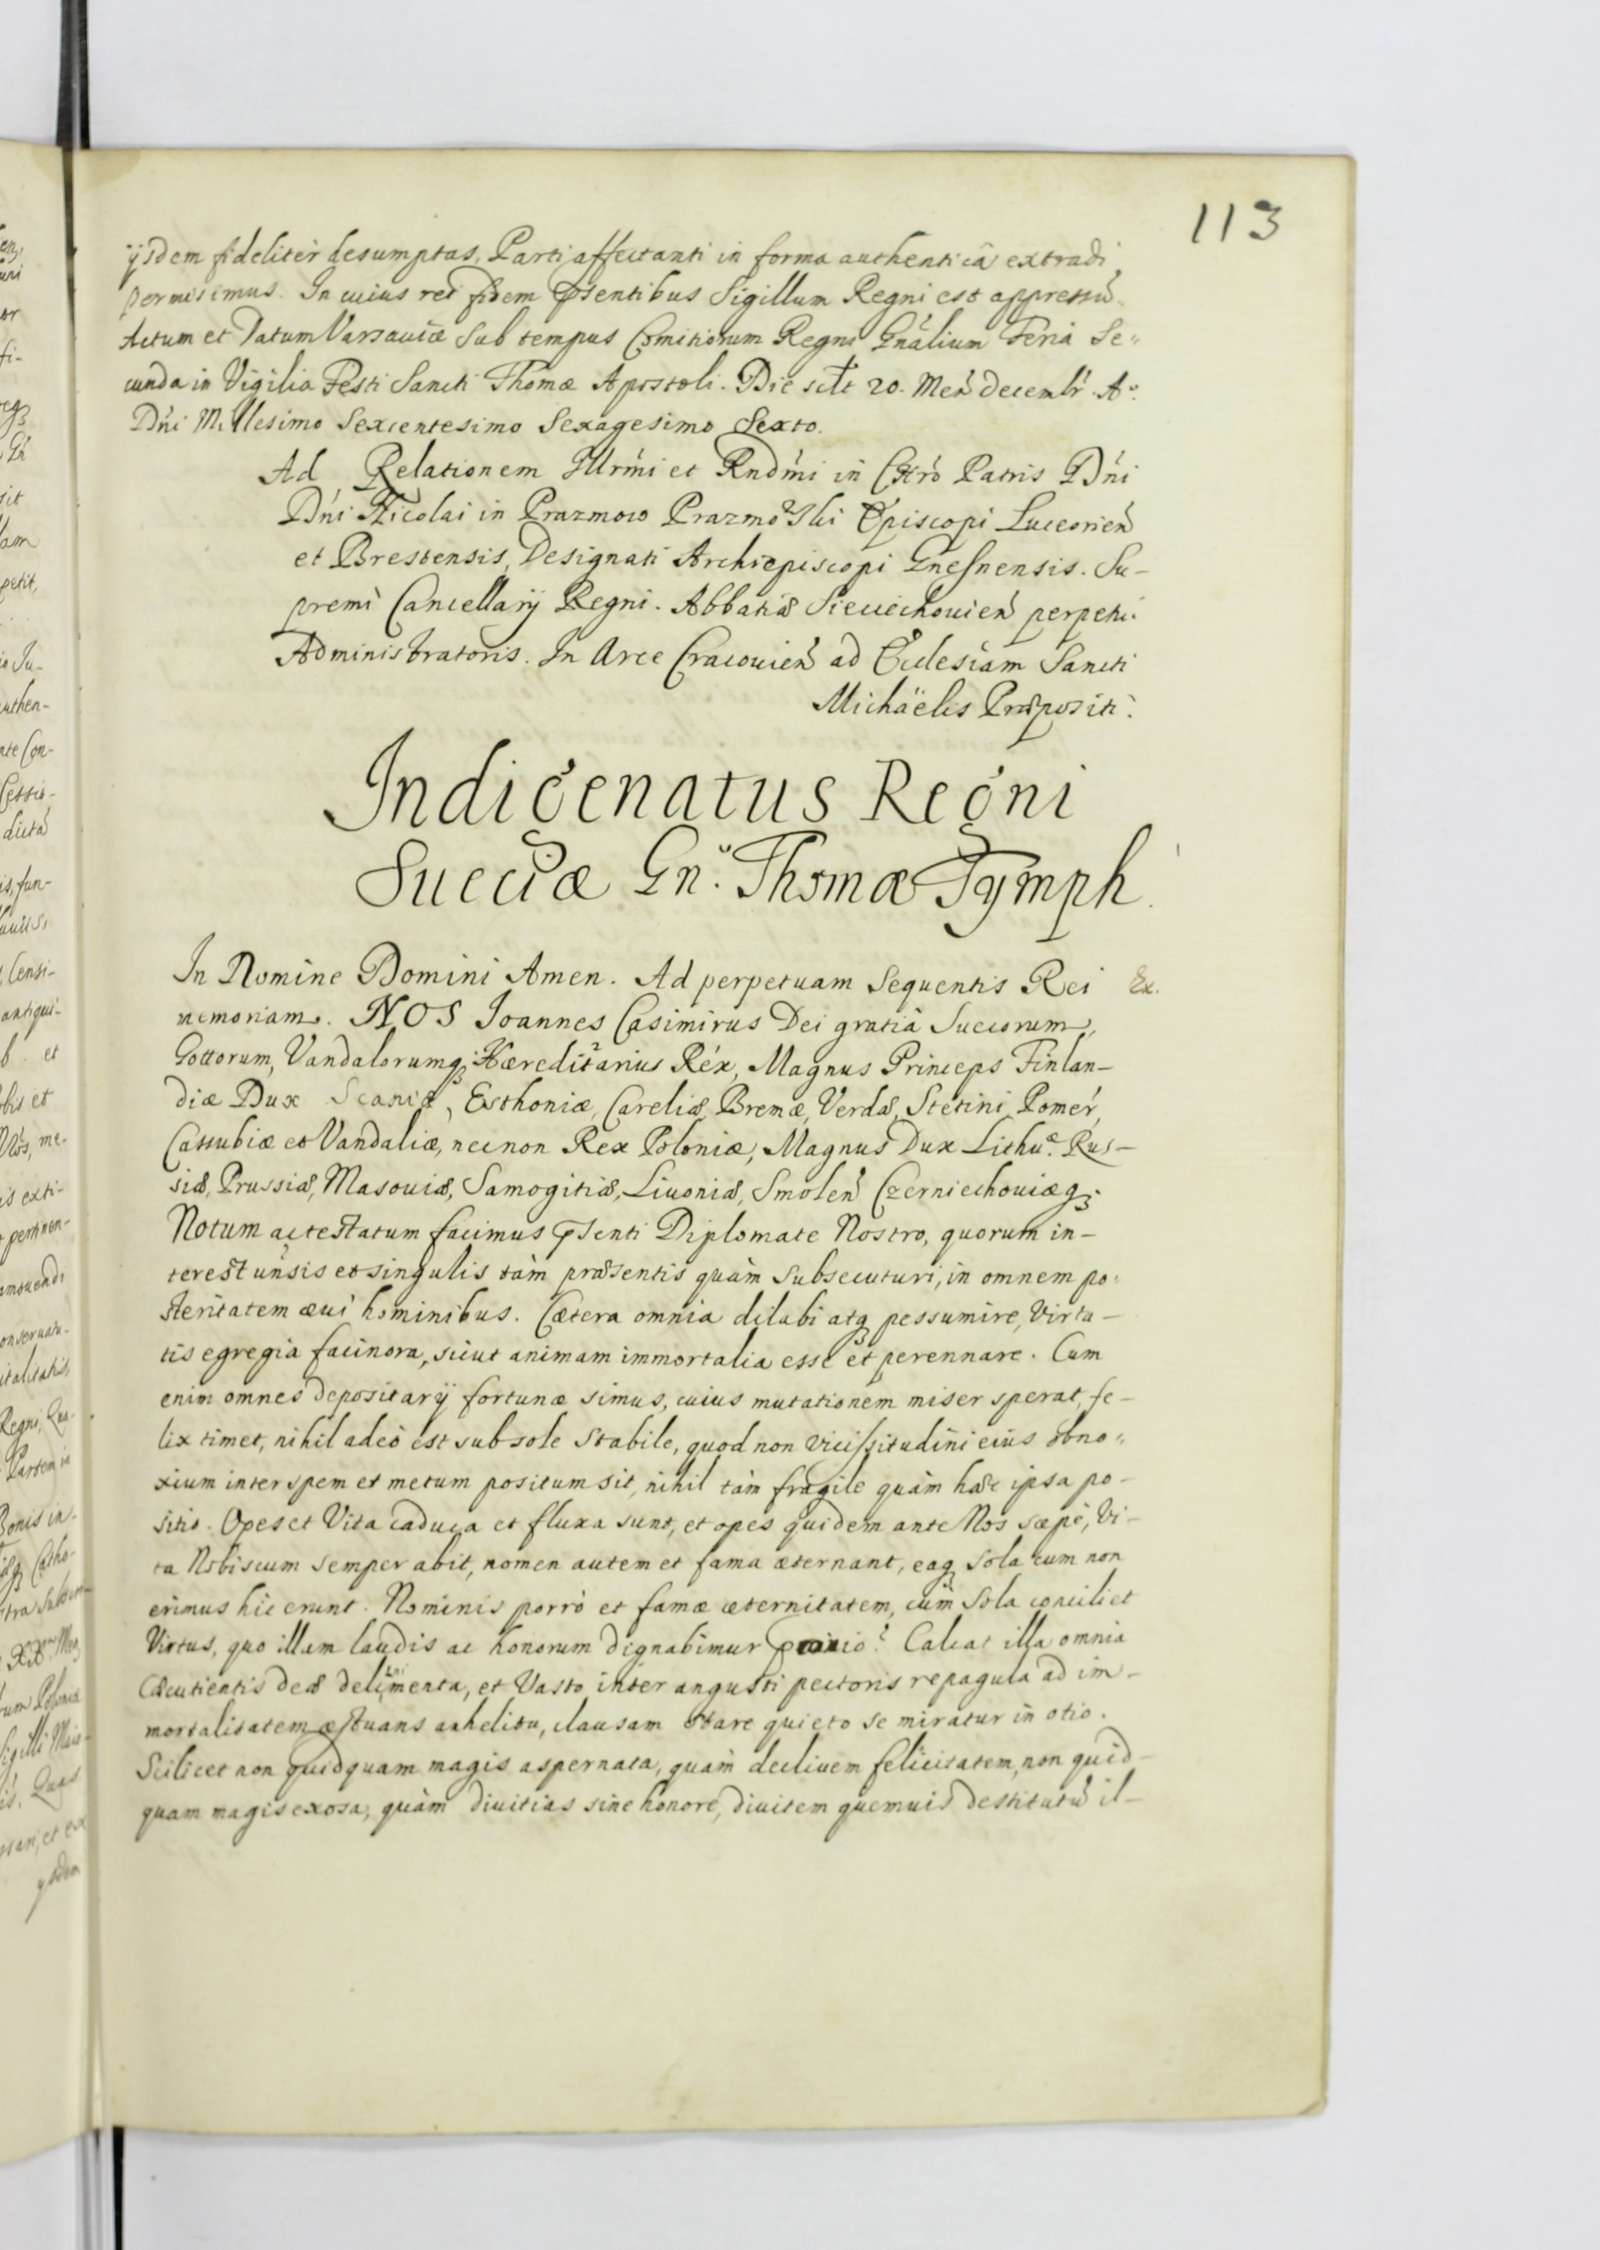 113
ÿsdem fideliter desumptas, Parti affectanti in forma authenticâ extradi
permisimus. In cuius rei fidem pn̄sentibus Sigillum Regni est appressũ.
Actum et Datum Varsauiæ Sub tempus Comitiorum Regni Gnãlium Feria Se„
cunda in Vigilia Festi Sancti Thomæ Apostoli. Die scilt 20. Men̄ Decembr̄. Aº.
Dn̄i Millesimo Sexcentesimo Sexagesimo Sexto.
Ad Relationem Illrm̄i et Rndm̄i in Chr̄o Patris Dn̄i
Dn̄i Nicolai in Prazmow Prazmowski Episcopi Luceorien̄
et Brestensis, Designati Archiepiscopi Gnesnensis. Su-
premi Cancellarÿ Regni. Abbatiæ Sieciechouien̄ perpetui
Administratoris. In Arce Cracouien̄ ad Ecclesiam Sancti
Michäelis Præpositi.
Indigenatus Regni
Sueciæ Gn. Thomæ Tÿmph.
In Nomine Domini Amen. Ad perpetuam Sequentis Rei
Ex.
memoriam. NOS Joannes Casimirus Dei gratiâ Suecorum,
Gottorum, Vandalorumq; Hæreditarius Réx, Magnus Princeps Finlan-
diæ Dux Scaniæ, Esthoniæ, Careliæ, Bremæ, Verdæ, Stetini, Pomer̄,
Cassubiæ et Vandaliæ, necnon Rex Poloniæ, Magnus Dux Lithuæ. Rus-
siæ, Prussiæ, Masouiæ, Samogitiæ, Liuoniæ, Smolen̄ Czerniechouiæq;.
Notum ac testatum facimus pn̄senti Diplomate Nostro, quorum in-
terest un̄sis et singulis tàm præsentis quàm Subsecuturi, in omnem po-
steritatem æui hominibus. Cætera omnia dilabi atq; pessumire, Virtu-
tis egregia facinora, sicut animam immortalia esse et perennare. Cum
enim omnes depositarÿ fortunæ simus, cuius mutationem miser sperat, fe-
lix timet, nihil adeò est sub sole Stabile, quod non Vicissitudini eius obno„
xium inter spem et metum positum sit, nihil tàm fragile quàm hæc ipsa po-
sitio. Opes et Vita caduca et fluxa sunt, et opes quidem ante Nos sæpè, Vi-
ta Nobiscum semper abit, nomen autem et fama æternant, eaq; Sola cum non
erimus hic erunt. Nominis porrò et famæ æternitatem, cùm Sola conciliet
Virtus, quo illam laudis ac honorum dignabimur Calcat illa omnia
Cæcutientis deæ delinimenta, et Vasto inter angusti pectoris repagula ad im-
mortalitatem æstuans anhelitu, clausam Stare quieto se miratur in otio.
Scilicet non quidquam magis aspernata, quàm decliuem felicitatem, non quid-
quam magis exosa, quàm diuitias sine honore, diuitem quemuis destitutũ il-